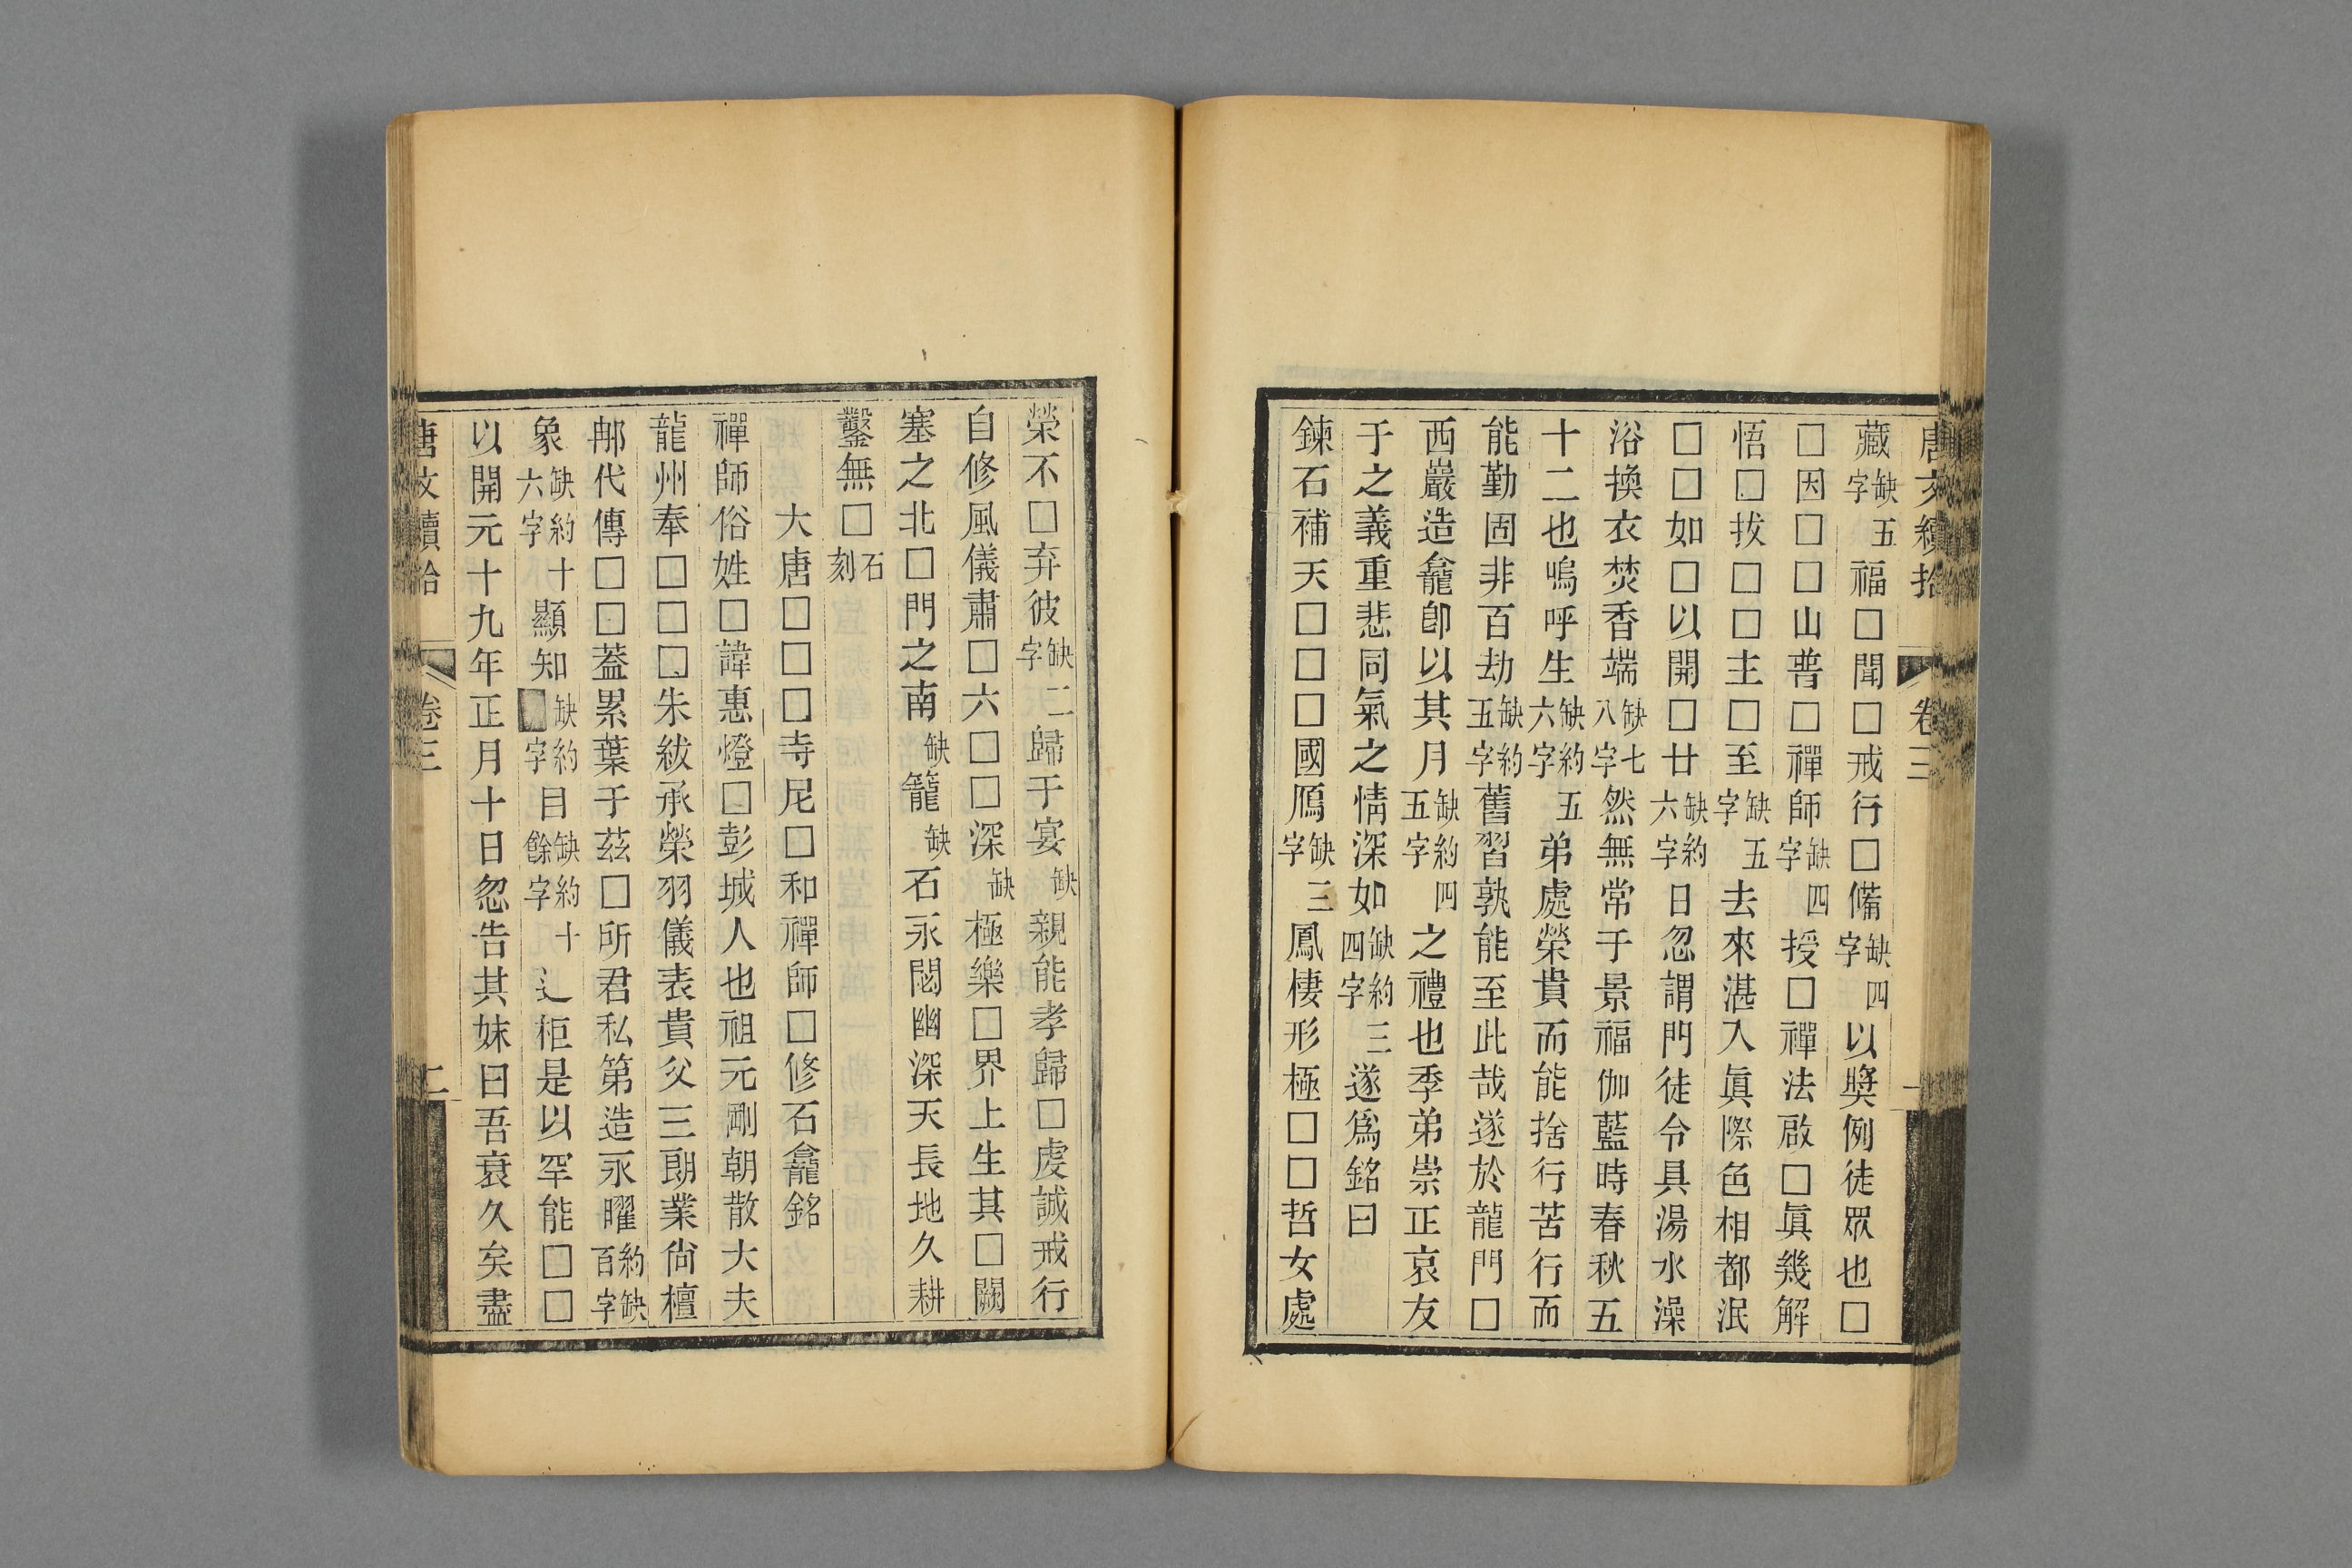 唐文續拾 卷三 一
藏缺五字福□聞□戒行□備缺四字以獎例徒眾也□
□因□□山普□禪師缺四字授□禪法啟□眞幾解
悟□拔□□主□至缺五字去來湛入眞際色相都泯
□□如□以開□廿缺約六字日忽謂門徒令具湯水澡
浴換衣焚香端缺七八字然無常于景福伽藍時春秋五
十二也嗚呼生缺約五六字弟處榮貴而能捨行苦行而
能勤固非百劫缺約五字舊習孰能至此哉遂於龍門□
西巖造龕卽以其月缺約四五字之禮也季弟崇正哀友
于之義重悲同氣之情深如缺約三四字遂爲銘曰
鍊石補天□□□國鴈缺三字鳳棲形極□□哲女處
榮不□弃彼缺二字歸于宴缺親能孝歸□虔誠戒行
自修風儀肅□六□□深缺極樂□界上生其□闕
塞之北□門之南缺籠缺石永閟幽深天長地久耕
鑿無□石刻
大唐□□□寺尼□和禪師□修石龕銘
禪師俗姓□諱惠燈□彭城人也祖元剛朝散大夫
龍州奉□□□朱紱承榮羽儀表貴父三朗業尙檀
郍代傳□□葢累葉于茲□所君私第造永曜約缺百字
象缺約十六字顯知缺約字目缺約十餘字辶柜是以罕能□□
以開元十九年正月十日忽告其妹曰吾衰久矣盡
唐文續拾 卷三 二